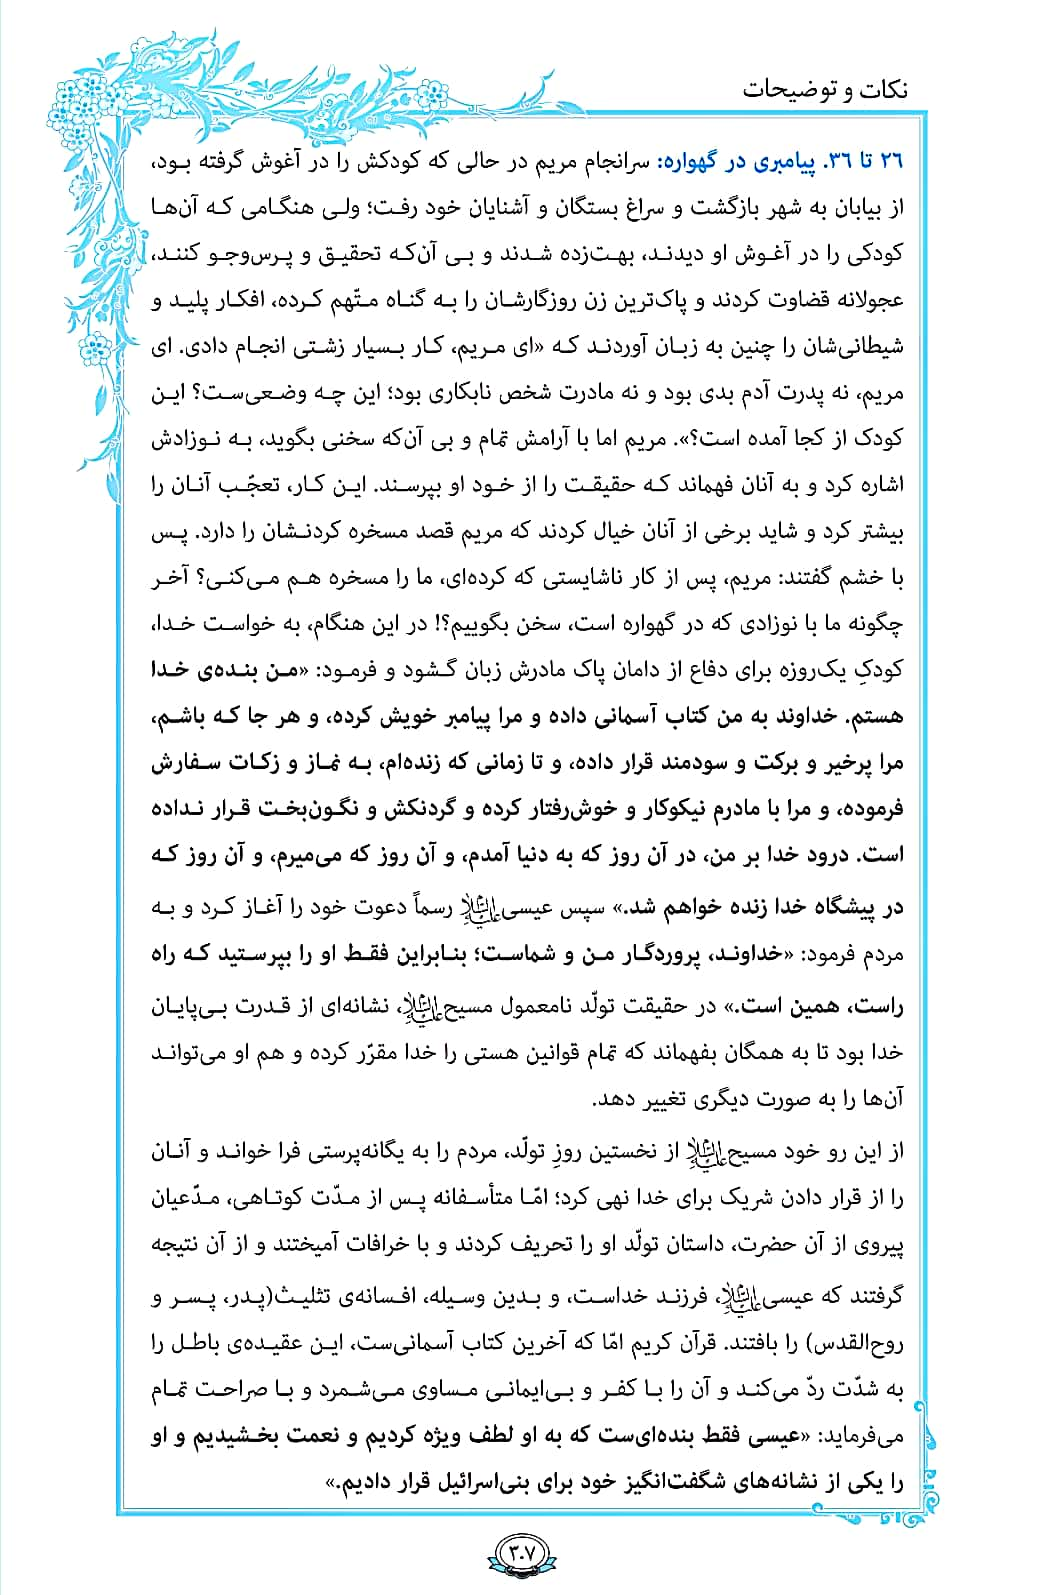 نکات و توضیحات
۲۶ تا ۳۶. پیامبری در گهواره: سرانجام مریم در حالی که کودکش را در آغوش گرفته بود،
از بیابان به شهر بازگشت و سراغ بستگان و آشنایان خود رفت؛ ولی هنگامی که آن‌ها
کودکی را در آغوش او دیدند، بهت‌زده شدند و بی آن‌که تحقیق و پرس‌وجو کنند،
عجولانه قضاوت کردند و پاک‌ترین زن روزگارشان را به گناه متّهم کرده، افکار پلید و
شیطانی‌شان را چنین به زبان آوردند که «ای مریم، کار بسیار زشتی انجام دادی. ای
مریم، نه پدرت آدم بدی بود و نه مادرت شخص نابکاری بود؛ این چه وضعی‌ست؟ این
کودک از کجا آمده است؟». مریم اما با آرامش تمام و بی آن‌که سخنی بگوید، به نوزادش
اشاره کرد و به آنان فهماند که حقیقت را از خود او بپرسند. این کار، تعجّب آنان را
بیشتر کرد و شاید برخی از آنان خیال کردند که مریم قصد مسخره کردنشان را دارد. پس
با خشم گفتند: مریم، پس از کار ناشایستی که کرده‌ای، ما را مسخره هم می‌کنی؟ آخر
چگونه ما با نوزادی که در گهواره است، سخن بگوییم؟! در این هنگام، به خواست خدا،
کودکِ یک‌روزه برای دفاع از دامان پاک مادرش زبان گشود و فرمود: «من بنده‌ی خدا
هستم. خداوند به من کتاب آسمانی داده و مرا پیامبر خویش کرده، و هر جا که باشم،
مرا پرخیر و برکت و سودمند قرار داده، و تا زمانی که زنده‌ام، به نماز و زکات سفارش
فرموده، و مرا با مادرم نیکوکار و خوش‌رفتار کرده و گردنکش و نگون‌بخت قرار نداده
است. درود خدا بر من، در آن روز که به دنیا آمدم، و آن روز که می‌میرم، و آن روز که
در پیشگاه خدا زنده خواهم شد.» سپس عیسی علیه‌السلام رسماً دعوت خود را آغاز کرد و به
مردم فرمود: «خداوند، پروردگار من و شماست؛ بنابراین فقط او را بپرستید که راه
راست، همین است.» در حقیقت تولّد نامعمول مسیح علیه‌السلام، نشانه‌ای از قدرت بی‌پایان
خدا بود تا به همگان بفهماند که تمام قوانین هستی را خدا مقرّر کرده و هم او می‌تواند
آن‌ها را به صورت دیگری تغییر دهد.
از این رو خود مسیح علیه‌السلام از نخستین روزِ تولّد، مردم را به یگانه‌پرستی فرا خواند و آنان
را از قرار دادن شریک برای خدا نهی کرد؛ امّا متأسفانه پس از مدّت کوتاهی، مدّعیان
پیروی از آن حضرت، داستان تولّد او را تحریف کردند و با خرافات آمیختند و از آن نتیجه
گرفتند که عیسی علیه‌السلام، فرزند خداست، و بدین وسیله، افسانه‌ی تثلیث(پدر، پسر و
روح‌القدس) را بافتند. قرآن کریم امّا که آخرین کتاب آسمانی‌ست، این عقیده‌ی باطل را
به شدّت ردّ می‌کند و آن را با کفر و بی‌ایمانی مساوی می‌شمرد و با صراحت تمام
می‌فرماید: «عیسی فقط بنده‌ای‌ست که به او لطف ویژه کردیم و نعمت بخشیدیم و او
را یکی از نشانه‌های شگفت‌انگیز خود برای بنی‌اسرائیل قرار دادیم.»
۳۰۷